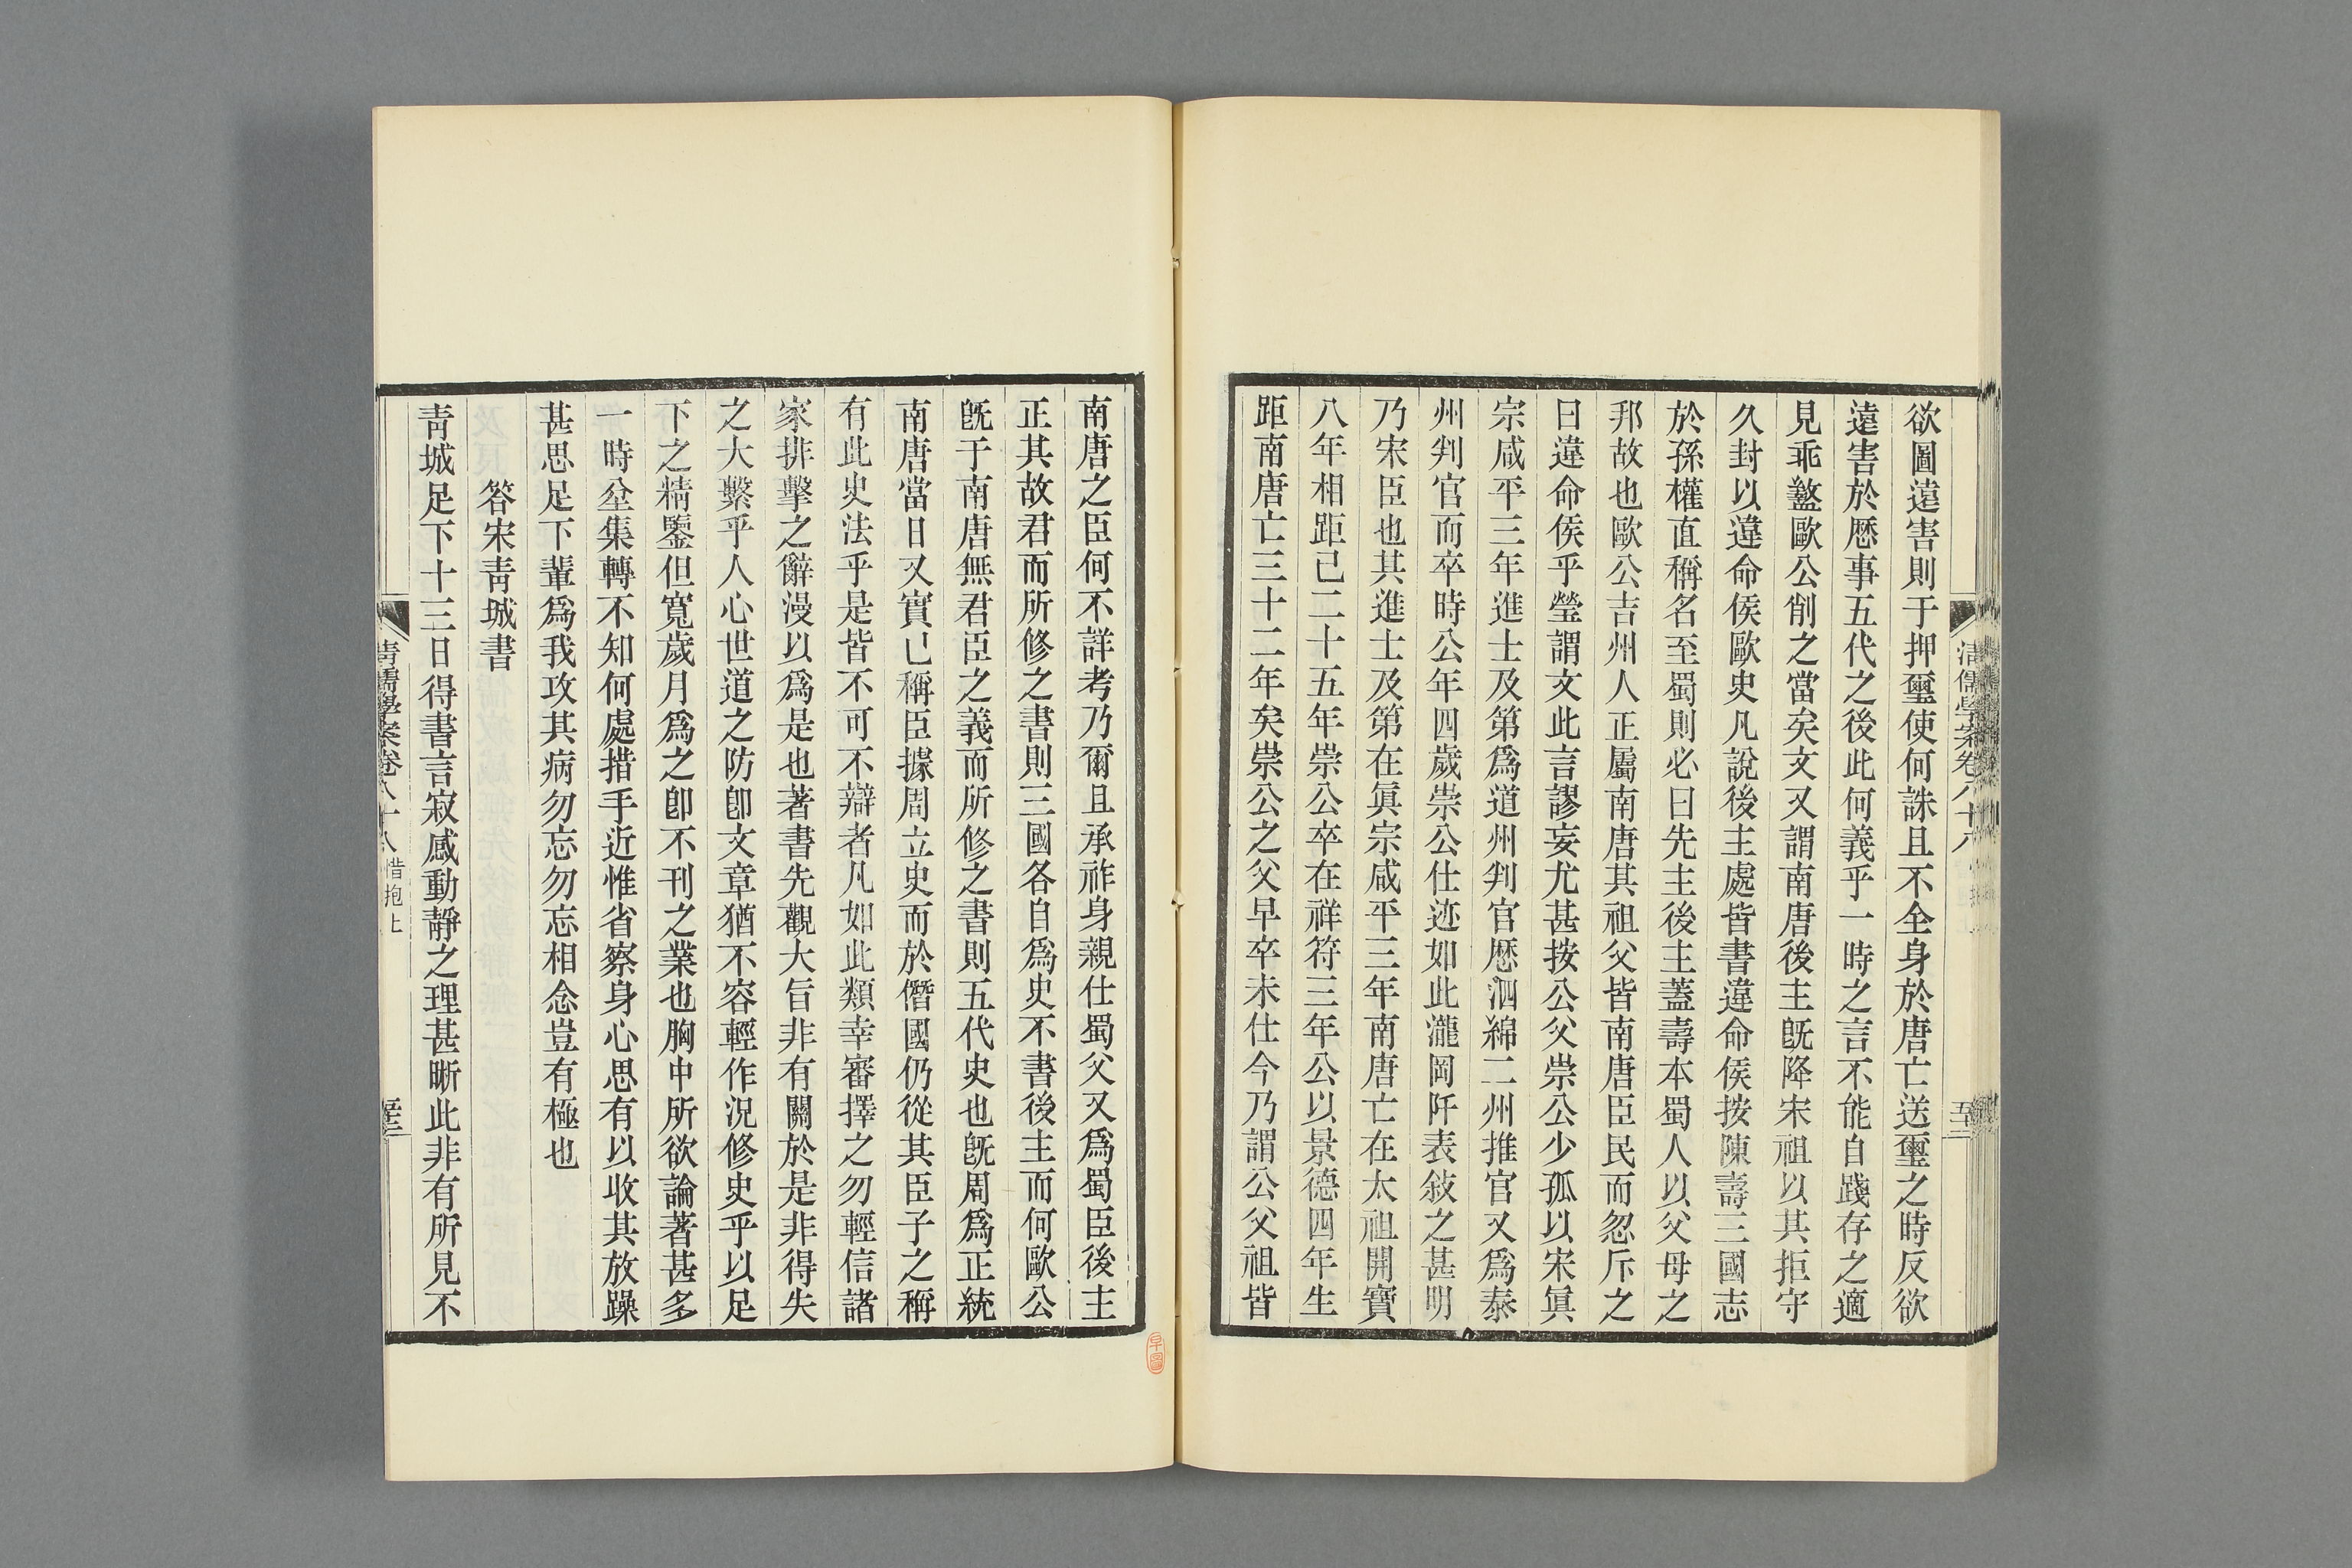 欲圖遠害則于押璽使何誅且不全身於唐亡送璽之時反欲
遠害於歷事五代之後此何義乎一時之言不能自踐存之適
見乖盭歐公削之當矣文又謂南唐後主既降宋祖以其拒守
久封以違命侯歐史凡說後主處皆書違命侯按陳壽三國志
於孫權直稱名至蜀則必曰先主後主蓋壽本蜀人以父母之
邦故也歐公吉州人正屬南唐其祖父皆南唐臣民而忽斥之
曰違命侯乎瑩謂文此言謬妄尤甚按公父崇公少孤以宋眞
宗咸平三年進士及第爲道州判官歷泗綿二州推官又爲泰
州判官而卒時公年四歲崇公仕迹如此瀧岡阡表敍之甚明
乃宋臣也其進士及第在眞宗咸平三年南唐亡在太祖開寶
八年相距己二十五年崇公卒在祥符三年公以景德四年生
距南唐亡三十二年矣崇公之父早卒未仕今乃謂公父祖皆
南唐之臣何不詳考乃爾且承祚身親仕蜀父又爲蜀臣後主
正其故君而所修之書則三國各自爲史不書後主而何歐公
既于南唐無君臣之義而所修之書則五代史也既周爲正統
南唐當日又實已稱臣據周立史而於僭國仍從其臣子之稱
有此史法乎是皆不可不辯者凡如此類幸審擇之勿輕信諸
家排擊之辭漫以爲是也著書先觀大旨非有關於是非得失
之大繫乎人心世道之防卽文章猶不容輕作況修史乎以足
下之精鑒但寬歲月爲之卽不刊之業也胸中所欲論著甚多
一時坌集轉不知何處措手近惟省察身心思有以收其放躁
甚思足下輩爲我攻其病勿忘勿忘相念豈有極也
答宋靑城書
靑城足下十三日得書言寂感動靜之理甚晰此非有所見不